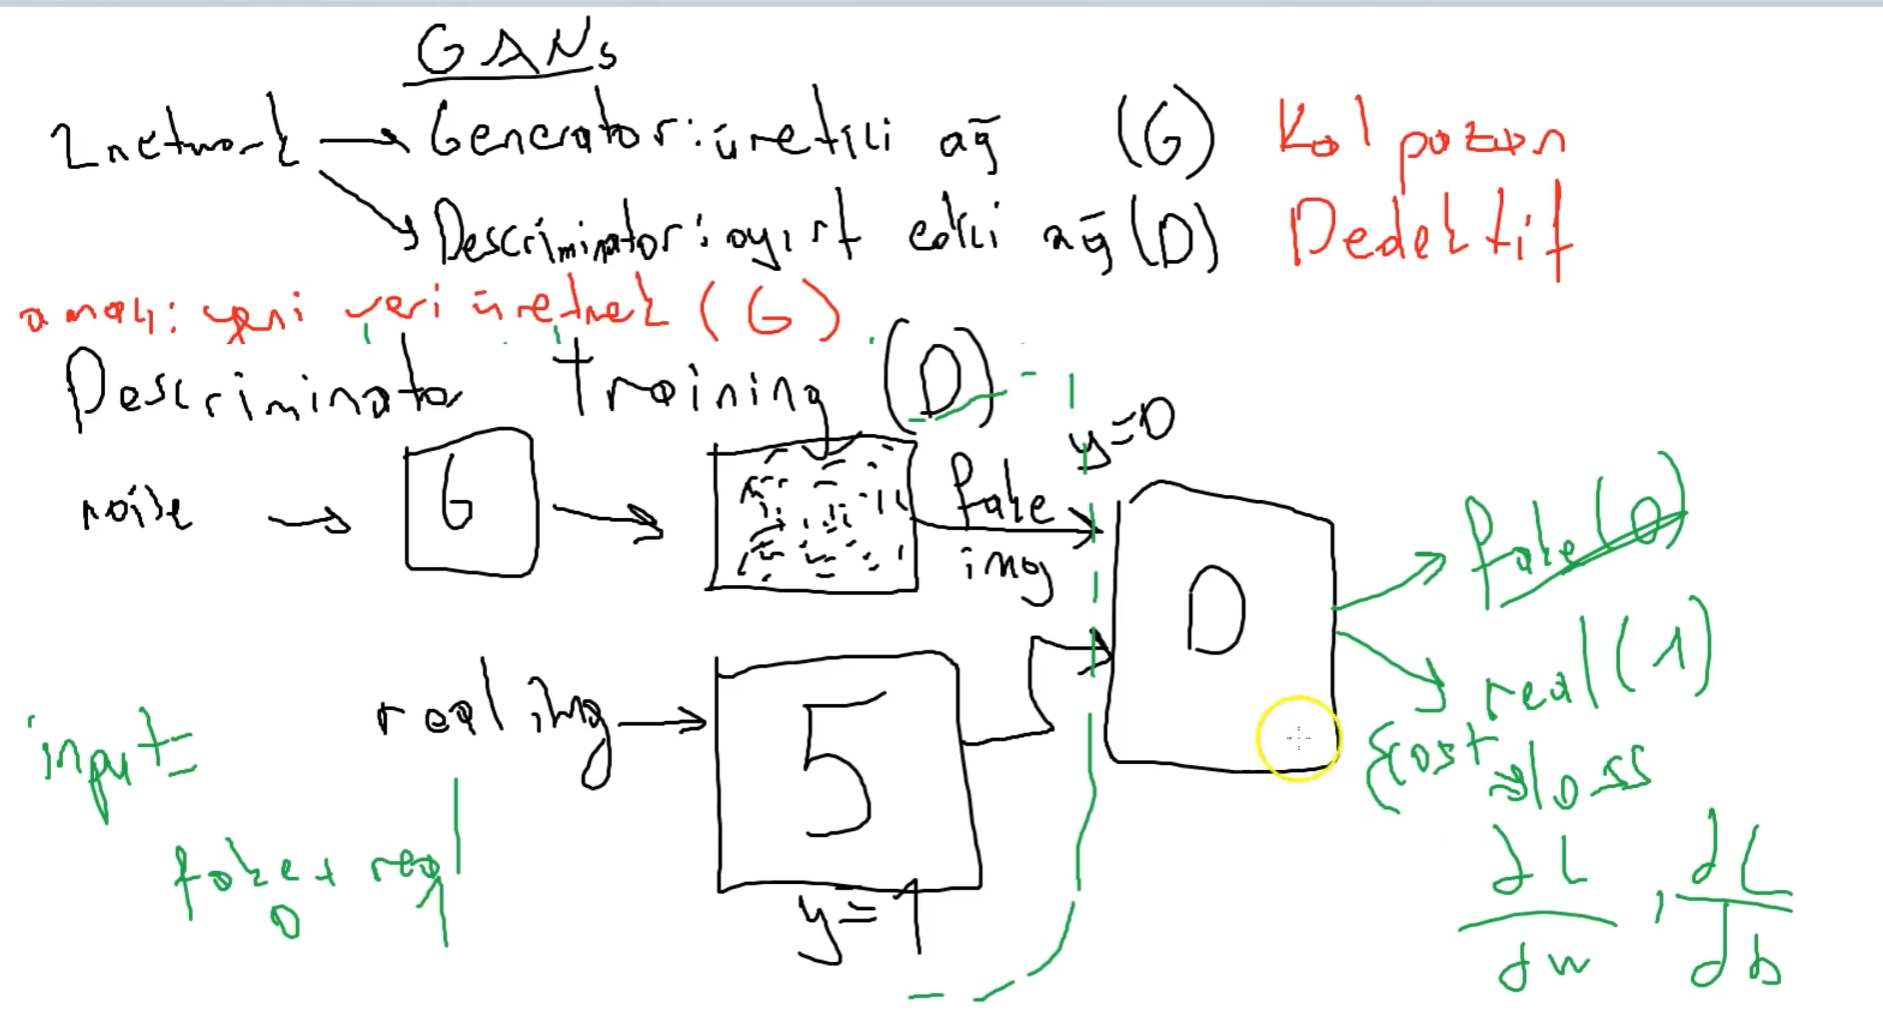 GANs
2 network → Generator: üretici ağ (G) Kalpazan
Descriminator: ayırt edici ağ (D) Dedektif
amaç: yeni veri üretmek (G)
Descriminator training (D)
y=0
noise → G → fake img
D
fake(0)
real(1)
real img → 5
y=1
input=
fake + real
0 1
cost → loss
dL/dw , dL/db